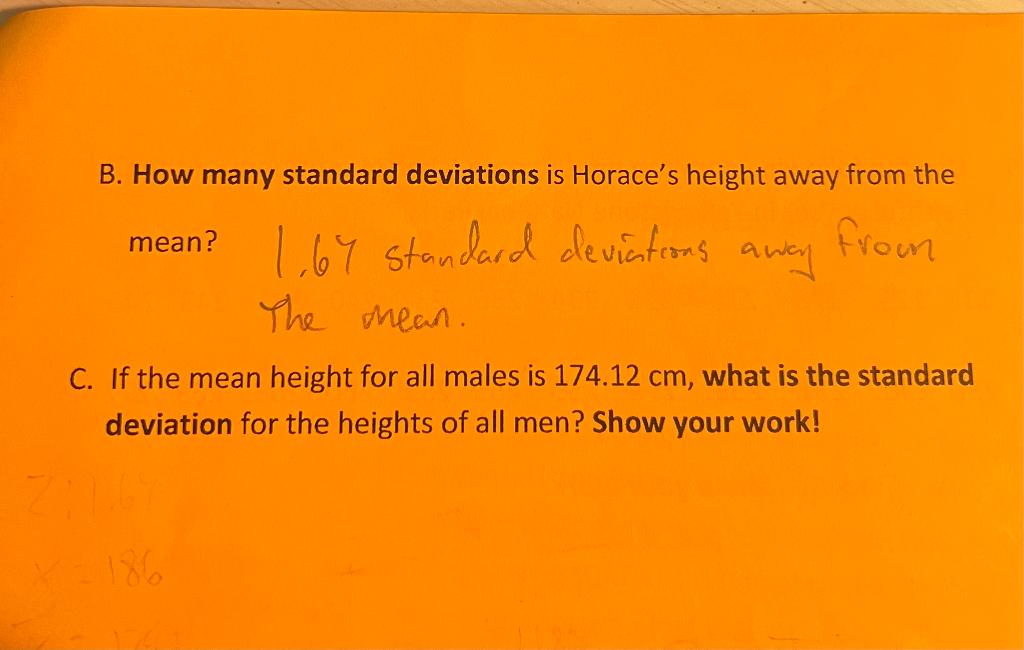 B. How many standard deviations is Horace's height away from the
mean? 1.67 standard deviations away from
The mean.
C. If the mean height for all males is 174.12 cm, what is the standard
deviation for the heights of all men? Show your work!
Z: 1.67
x = 186